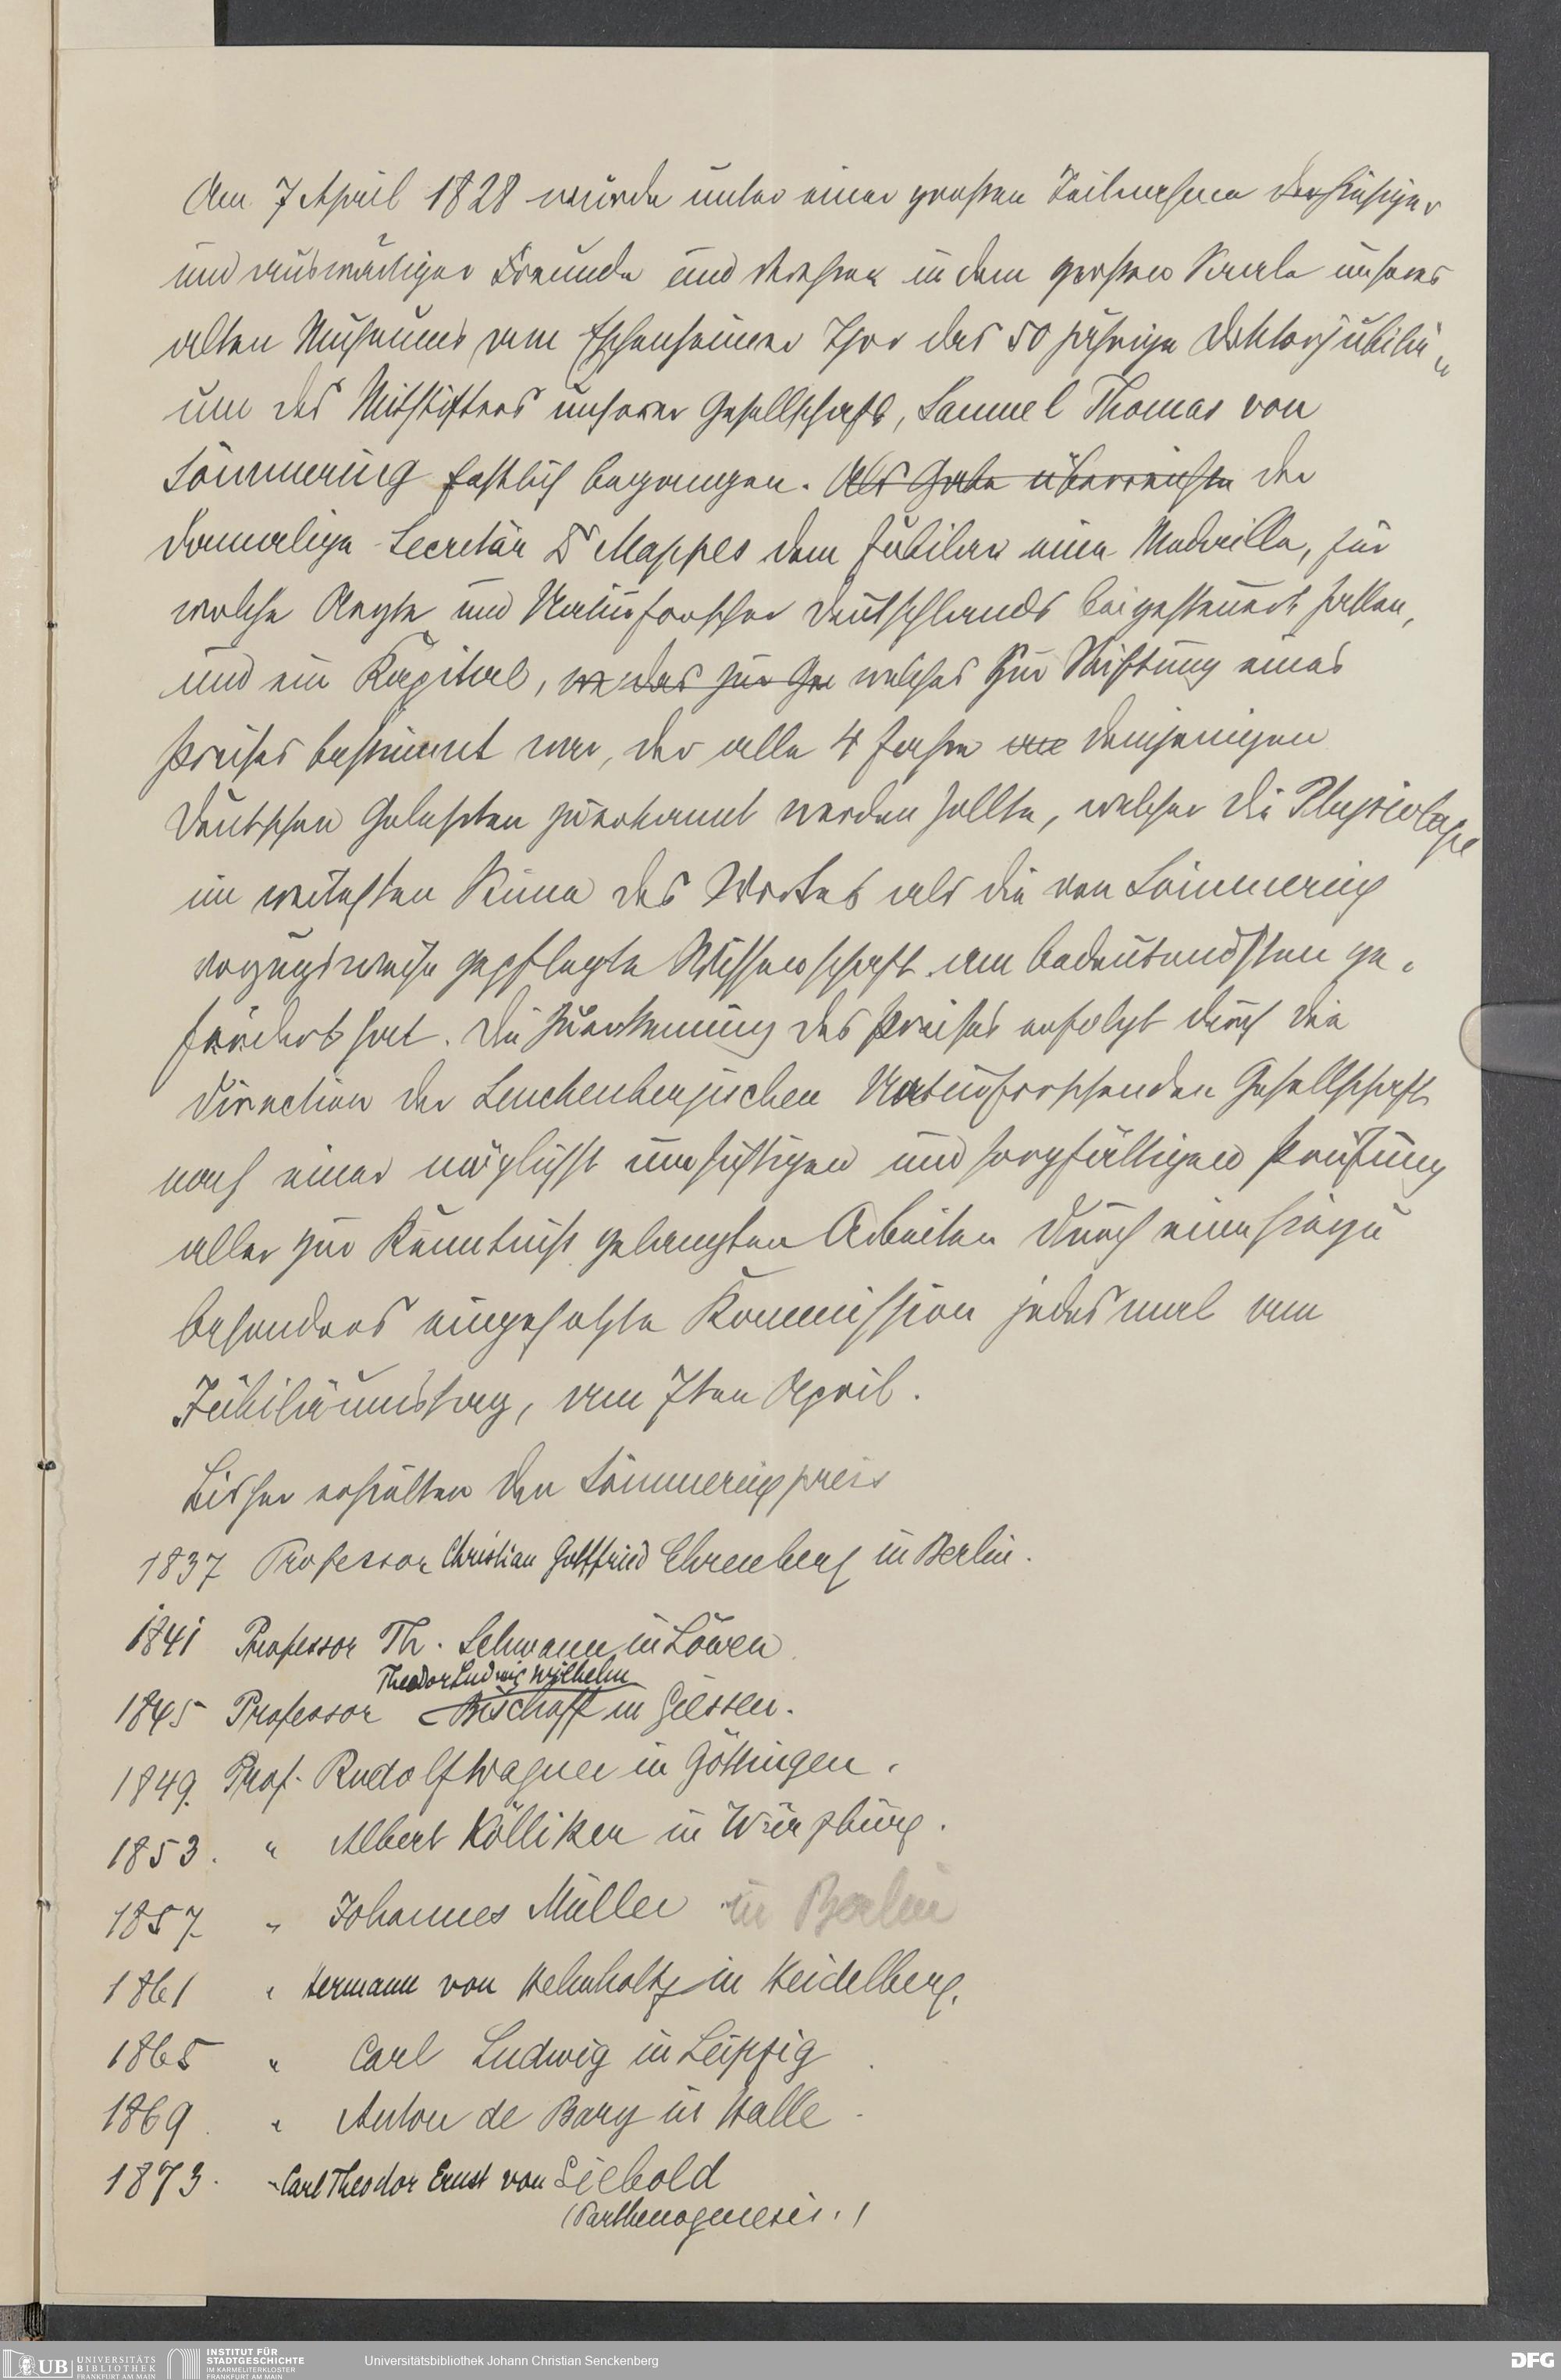 Am 7 April 1828 wurde unter einer großen Teilnahme der hiesiger
und auswärtiger Freunde und Verehrer in dem großen Saale unseres
alten Museums am Eschenheimer Thor das 50 jährige Doktorjubilä„
um des Mitstifters unserer Gesellschaft, Samuel Thomas von
Sömmering festlich begangen. Als Gabe überreichte der
damalige Secretär Dr Mappes dem Jubilar eine Medaille, für
welche Aerzte und Naturforscher Deutschlands beigesteuert hatten,
und ein Kapital, das zur welches zur Stiftung eines
Preises bestimmt war, der alle 4 Jahre demjenigen
deutschen Gelehrten zuerkannt werden sollte, welcher die Physiologie
im weitesten Sinne des Wortes als die von Sömmering
vorzugsweise gepflegte Wissenschaft am bedeutendsten ge-
fördert hat. Die Zuerkennung des Preises erfolgt durch die
Direction der Senckenbergischen Naturforschenden Gesellschaft
nach einer möglichst umsichtigen und sorgfältigen Prüfung
aller zur Kenntniß gelangten Arbeiten durch eine hiezu
besonders eingesetzte Kommission jedesmal am
Jubiläumstag, am 7ten April.
Bisher erhielten den Sömmeringpreis
1837 Professor Christian Gottfried Ehrenberg in Berlin.
1841 Professor Th. Schwann in Löwen
Theodor Ludwig Wilhelm
1845 Professor Bischoff in Giessen.
1849. Prof. Rudolf Wagner in Göttingen.
1853. " Albert Kölliker in Würzburg.
1857. " Johannes Müller in Berlin
1861 " Hermann von Helmholtz in Heidelberg.
1865 " Carl Ludwig in Leipzig
1869. " Anton de Bary in Halle
1873. " Carl Theodor Ernst von Siebold
(Parthenogenesis.)
UB UNIVERSITÄTS
BIBLIOTHEK
FRANKFURT AM MAIN
INSTITUT FÜR
STADTGESCHICHTE
IM KARMELITERKLOSTER
FRANKFURT AM MAIN
Universitätsbibliothek Johann Christian Senckenberg
DFG